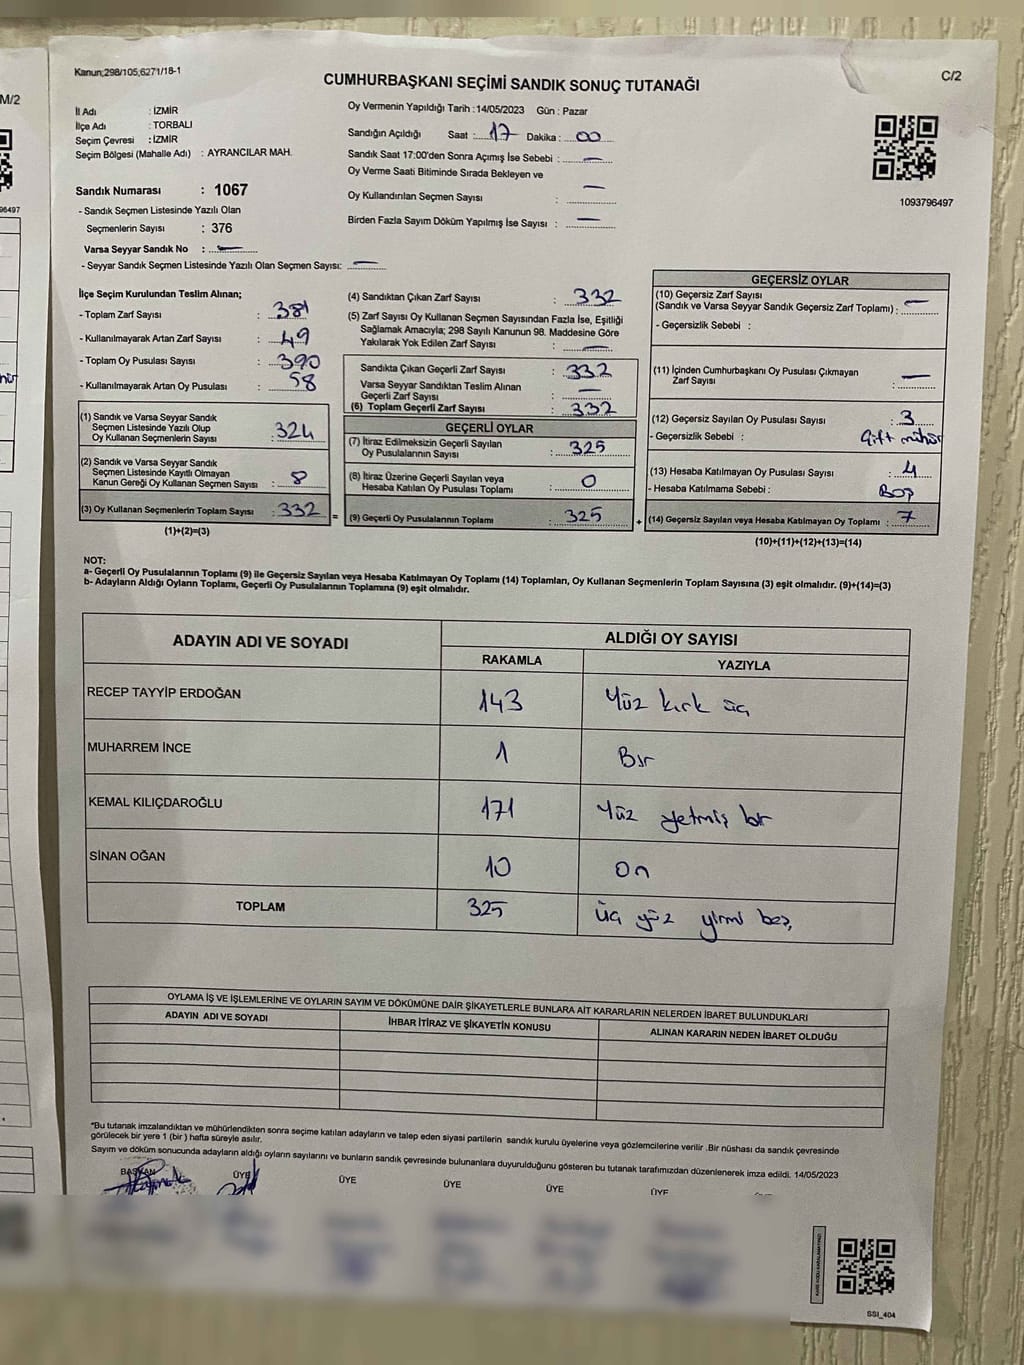 M/2
96497
Kanun;298/105;6271/18-1
C/2
CUMHURBAŞKANI SEÇİMİ SANDIK SONUÇ TUTANAĞI
İl Adı : İZMİR
İlçe Adı : TORBALI
Seçim Çevresi : İZMİR
Seçim Bölgesi (Mahalle Adı) : AYRANCILAR MAH.
Oy Vermenin Yapıldığı Tarih :14/05/2023 Gün : Pazar
Sandığın Açıldığı Saat : 17 Dakika : 00
Sandık Saat 17:00'den Sonra Açımış İse Sebebi : —
Oy Verme Saati Bitiminde Sırada Bekleyen ve
Oy Kullandırılan Seçmen Sayısı : —
Birden Fazla Sayım Döküm Yapılmış İse Sayısı : —
1093796497
Sandık Numarası : 1067
- Sandık Seçmen Listesinde Yazılı Olan
Seçmenlerin Sayısı : 376
Varsa Seyyar Sandık No : —
- Seyyar Sandık Seçmen Listesinde Yazılı Olan Seçmen Sayısı: —
İlçe Seçim Kurulundan Teslim Alınan;
- Toplam Zarf Sayısı : 381
- Kullanılmayarak Artan Zarf Sayısı : 49
- Toplam Oy Pusulası Sayısı : 390
- Kullanılmayarak Artan Oy Pusulası : 58
(1) Sandık ve Varsa Seyyar Sandık
Seçmen Listesinde Yazılı Olup
Oy Kullanan Seçmenlerin Sayısı : 324
(2) Sandık ve Varsa Seyyar Sandık
Seçmen Listesinde Kayıtlı Olmayan
Kanun Gereği Oy Kullanan Seçmen Sayısı : 8
(3) Oy Kullanan Seçmenlerin Toplam Sayısı : 332
(1)+(2)=(3)
(4) Sandıktan Çıkan Zarf Sayısı : 332
(5) Zarf Sayısı Oy Kullanan Seçmen Sayısından Fazla İse, Eşitliği
Sağlamak Amacıyla; 298 Sayılı Kanunun 98. Maddesine Göre
Yakılarak Yok Edilen Zarf Sayısı : —
Sandıkta Çıkan Geçerli Zarf Sayısı : 332
Varsa Seyyar Sandıktan Teslim Alınan
Geçerli Zarf Sayısı : —
(6) Toplam Geçerli Zarf Sayısı : 332
GEÇERLİ OYLAR
(7) İtiraz Edilmeksizin Geçerli Sayılan
Oy Pusulalarının Sayısı : 325
(8) İtiraz Üzerine Geçerli Sayılan veya
Hesaba Katılan Oy Pusulası Toplamı : 0
= (9) Geçerli Oy Pusulalarının Toplamı : 325 +
GEÇERSİZ OYLAR
(10) Geçersiz Zarf Sayısı
(Sandık ve Varsa Seyyar Sandık Geçersiz Zarf Toplamı) : —
- Geçersizlik Sebebi :
(11) İçinden Cumhurbaşkanı Oy Pusulası Çıkmayan
Zarf Sayısı : —
(12) Geçersiz Sayılan Oy Pusulası Sayısı : 3
- Geçersizlik Sebebi : Çift mühür
(13) Hesaba Katılmayan Oy Pusulası Sayısı : 4
- Hesaba Katılmama Sebebi : Boş
(14) Geçersiz Sayılan veya Hesaba Katılmayan Oy Toplamı : 7
(10)+(11)+(12)+(13)=(14)
NOT:
a- Geçerli Oy Pusulalarının Toplamı (9) ile Geçersiz Sayılan veya Hesaba Katılmayan Oy Toplamı (14) Toplamları, Oy Kullanan Seçmenlerin Toplam Sayısına (3) eşit olmalıdır. (9)+(14)=(3)
b- Adayların Aldığı Oyların Toplamı, Geçerli Oy Pusulalarının Toplamına (9) eşit olmalıdır.
ADAYIN ADI VE SOYADI ALDIĞI OY SAYISI
RAKAMLA YAZIYLA
RECEP TAYYİP ERDOĞAN 143 Yüz kırk üç
MUHARREM İNCE 1 Bir
KEMAL KILIÇDAROĞLU 171 Yüz yetmiş bir
SİNAN OĞAN 10 On
TOPLAM 325 üç yüz yirmi beş
OYLAMA İŞ VE İŞLEMLERİNE VE OYLARIN SAYIM VE DÖKÜMÜNE DAİR ŞİKAYETLERLE BUNLARA AİT KARARLARIN NELERDEN İBARET BULUNDUKLARI
ADAYIN ADI VE SOYADI İHBAR İTİRAZ VE ŞİKAYETİN KONUSU ALINAN KARARIN NEDEN İBARET OLDUĞU
*Bu tutanak imzalandıktan ve mühürlendikten sonra seçime katılan adayların ve talep eden siyasi partilerin sandık kurulu üyelerine veya gözlemcilerine verilir .Bir nüshası da sandık çevresinde
görülecek bir yere 1 (bir ) hafta süreyle asılır.
Sayım ve döküm sonucunda adayların aldığı oyların sayılarını ve bunların sandık çevresinde bulunanlara duyurulduğunu gösteren bu tutanak tarafımızdan düzenlenerek imza edildi. 14/05/2023
BAŞKAN ÜYE ÜYE ÜYE ÜYE ÜYE
SSI_404